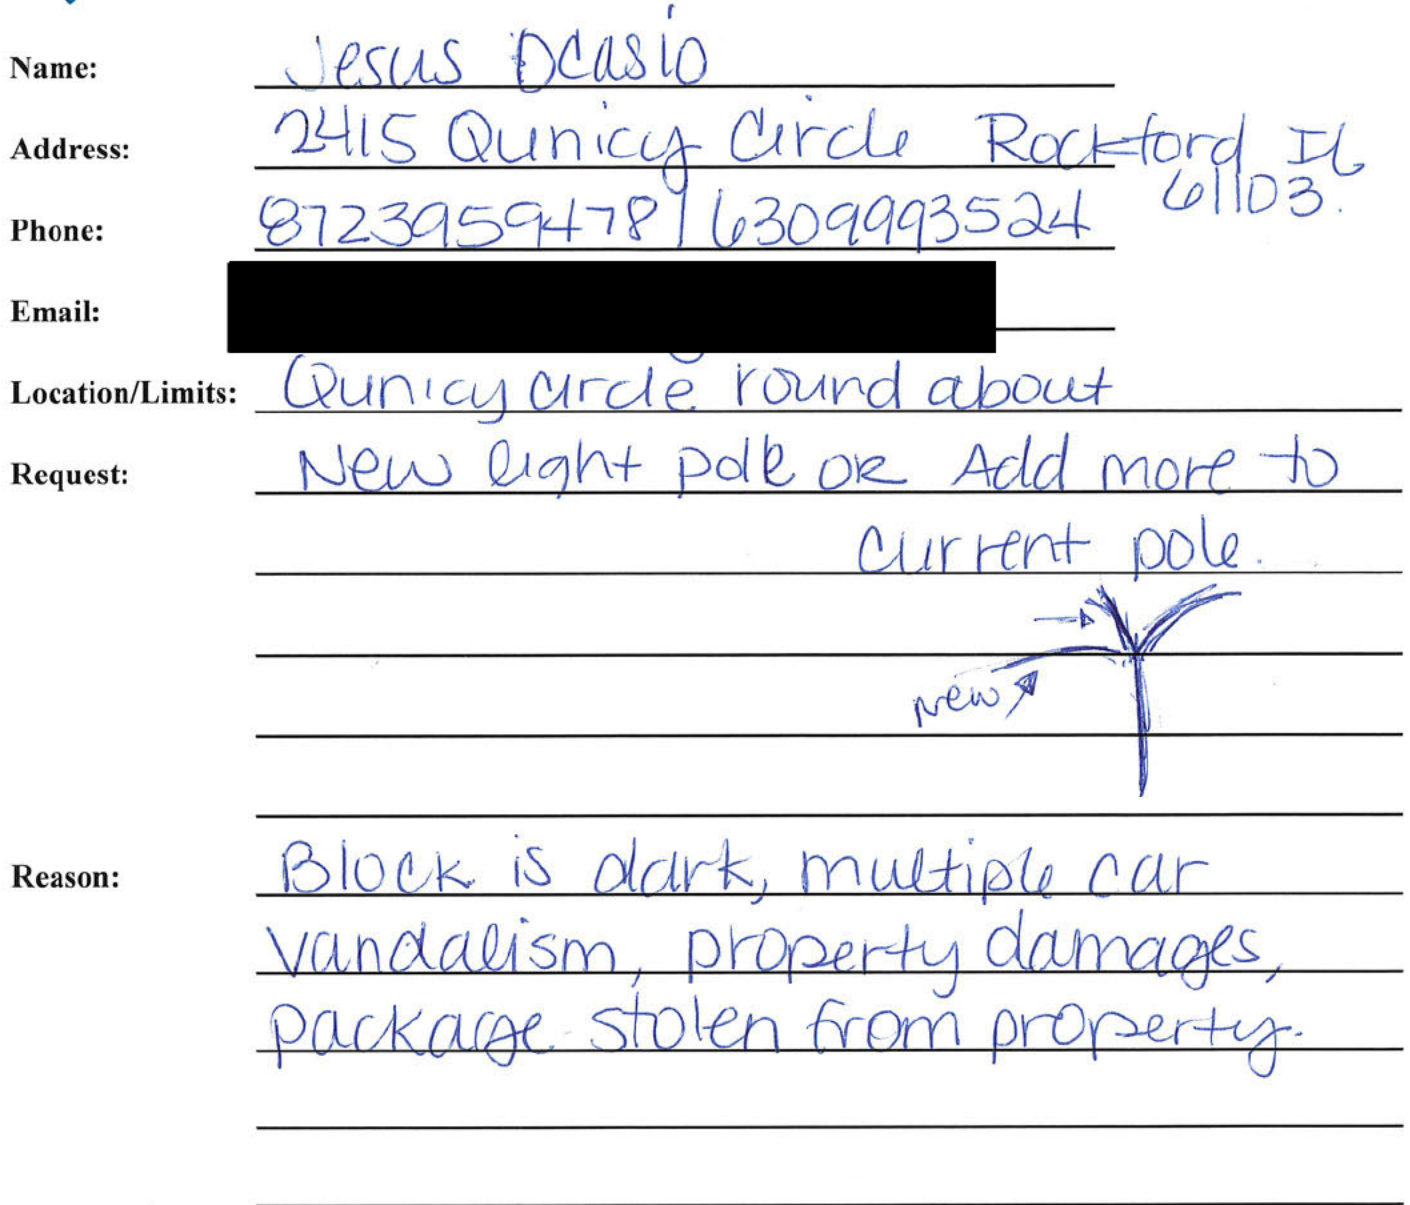 Name: Jesus Ocasio
Address: 2415 Qunicy Circle Rockford IL
61103.
Phone: 8723959478 | 6309993524
Email:
Location/Limits: Qunicy circle round about
Request: New light pole OR Add more to
current pole.
New
Reason: Block is dark, multiple car
vandalism, property damages,
package stolen from property.